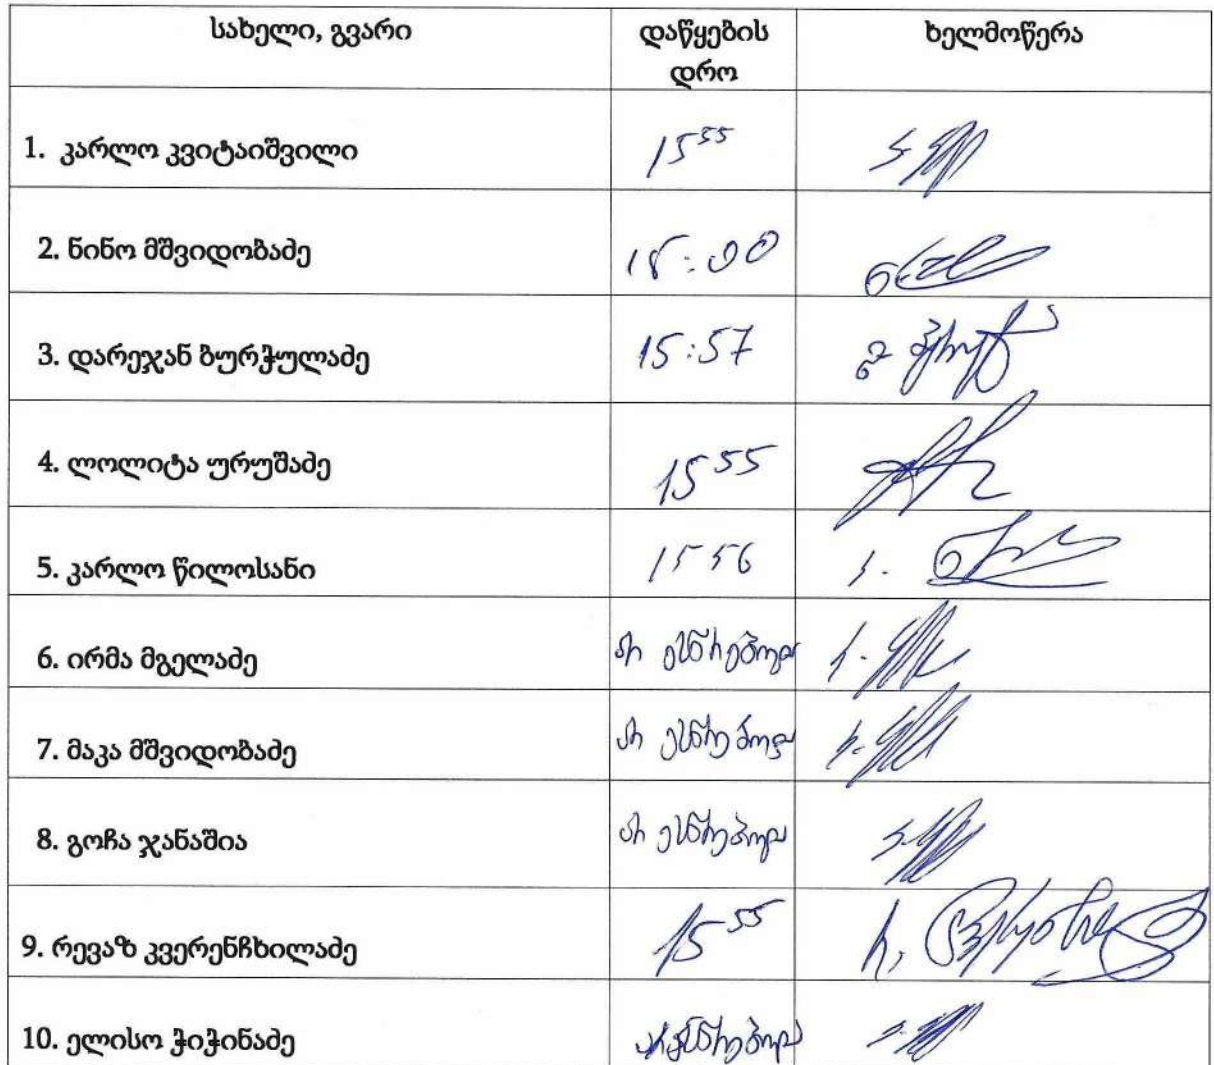 სახელი, გვარი
დაწყების
დრო
ხელმოწერა
1. კარლო კვიტაიშვილი 15 55
2. ნინო მშვიდობაძე
3. დარეჯან ბურჭულაძე 15:57
4. ლოლიტა ურუშაძე 15 55
5. კარლო წილოსანი 15 56
6. ირმა მგელაძე არ ესწრებოდა
7. მაკა მშვიდობაძე არ ესწრებოდა
8. გოჩა ჯანაშია არ ესწრებოდა
9. რევაზ კვერენჩხილაძე 15 55
10. ელისო ჭიჭინაძე არ ესწრებოდა